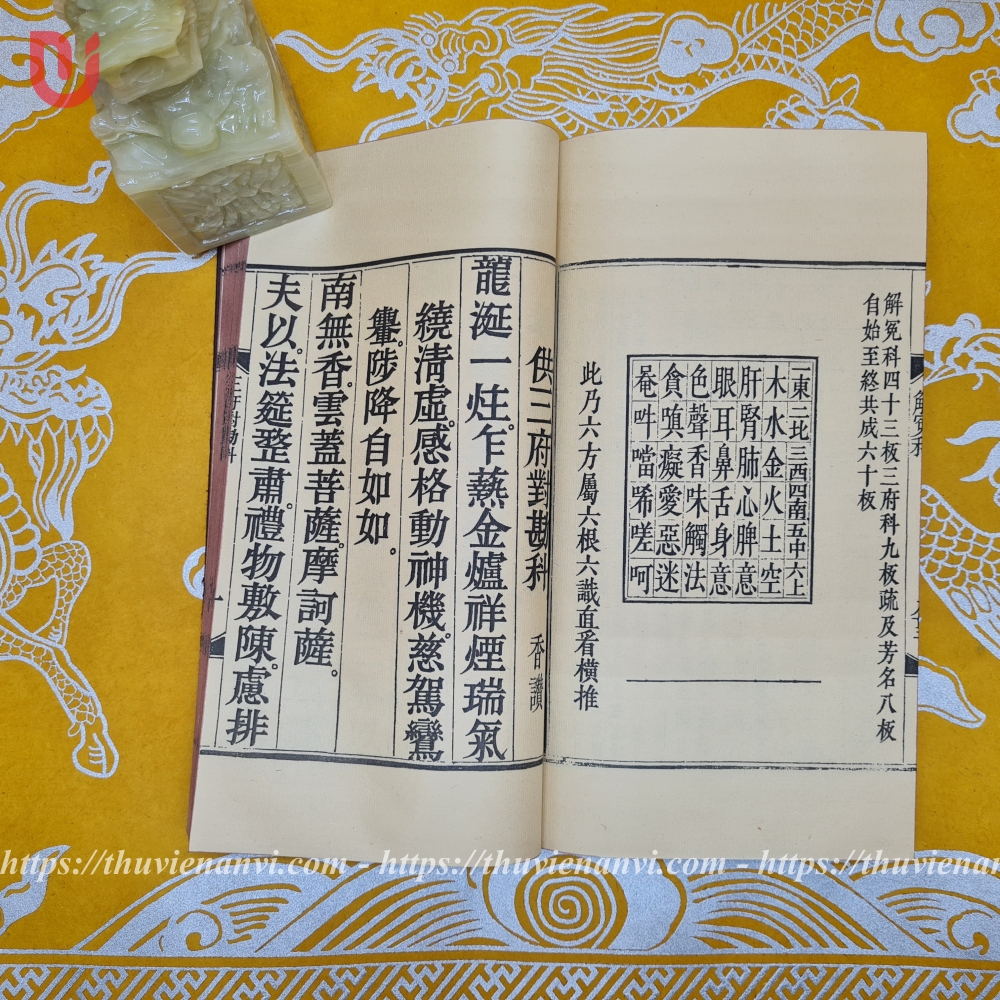 解冤科四十三板三府科九板疏及芳名八板
自始至終共成六十板
一東二北三西四南五中六上
木水金火土空
肝腎肺心脾意
眼耳鼻舌身意
色聲香味觸法
貪嗔癡愛惡迷
菴吽噹唏嗟呵
此乃六方屬六根六識直看橫推
供三府對勘科 香讚
龍涎一炷。乍熱金爐祥煙瑞氣
繞淸虛。感格動神機。慈駕鸞
轝。陟降自如如。
南無香。雲蓋菩薩。摩訶薩。
夫以。法筵整肅。禮物敷陳。慮排
三府對勘科
https://thuvienanvi.com - https://thuvienanvi.com - https://thuvienanvi